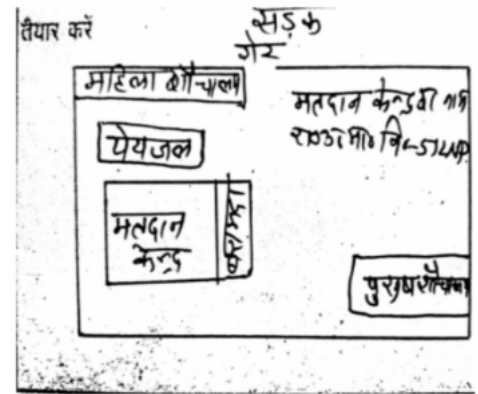 तैयार करें
सड़क
गेट
महिला शौचालय
मतदान केन्द्र का नाम
पेयजल
मतदान
केन्द्र
बरामदा
पुरुष शौचालय